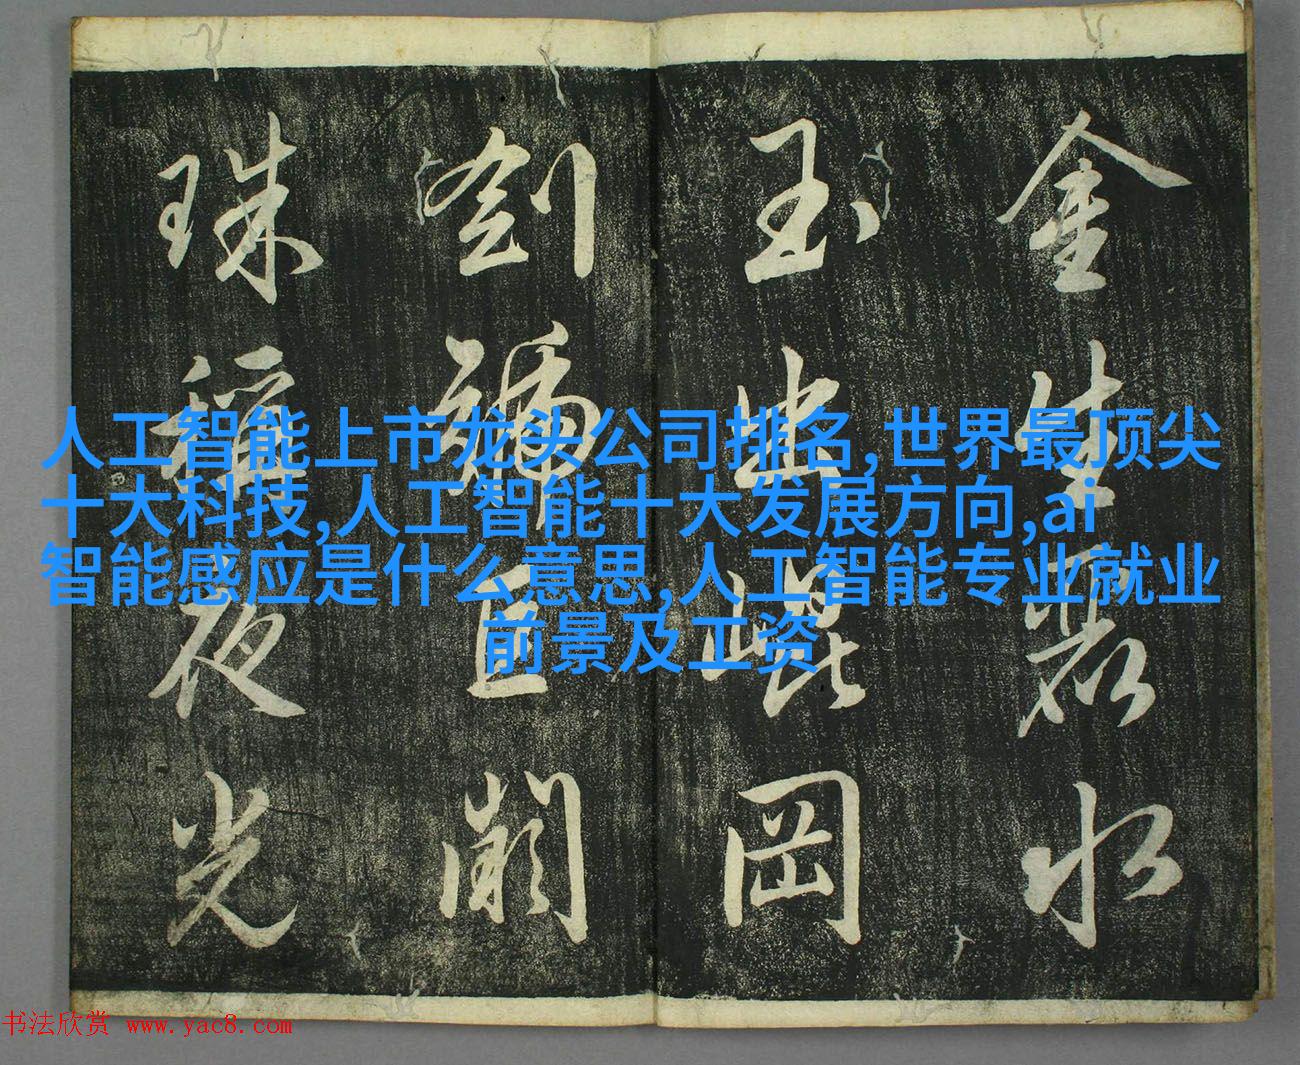 金生麗水
玉出崑岡
劍號巨闕
珠稱夜光
人工智能上市龙头公司排名,世界最顶尖
十大科技,人工智能十大发展方向,ai
智能感应是什么意思,人工智能专业就业
前景及工资
书法欣赏 www.yac8.com